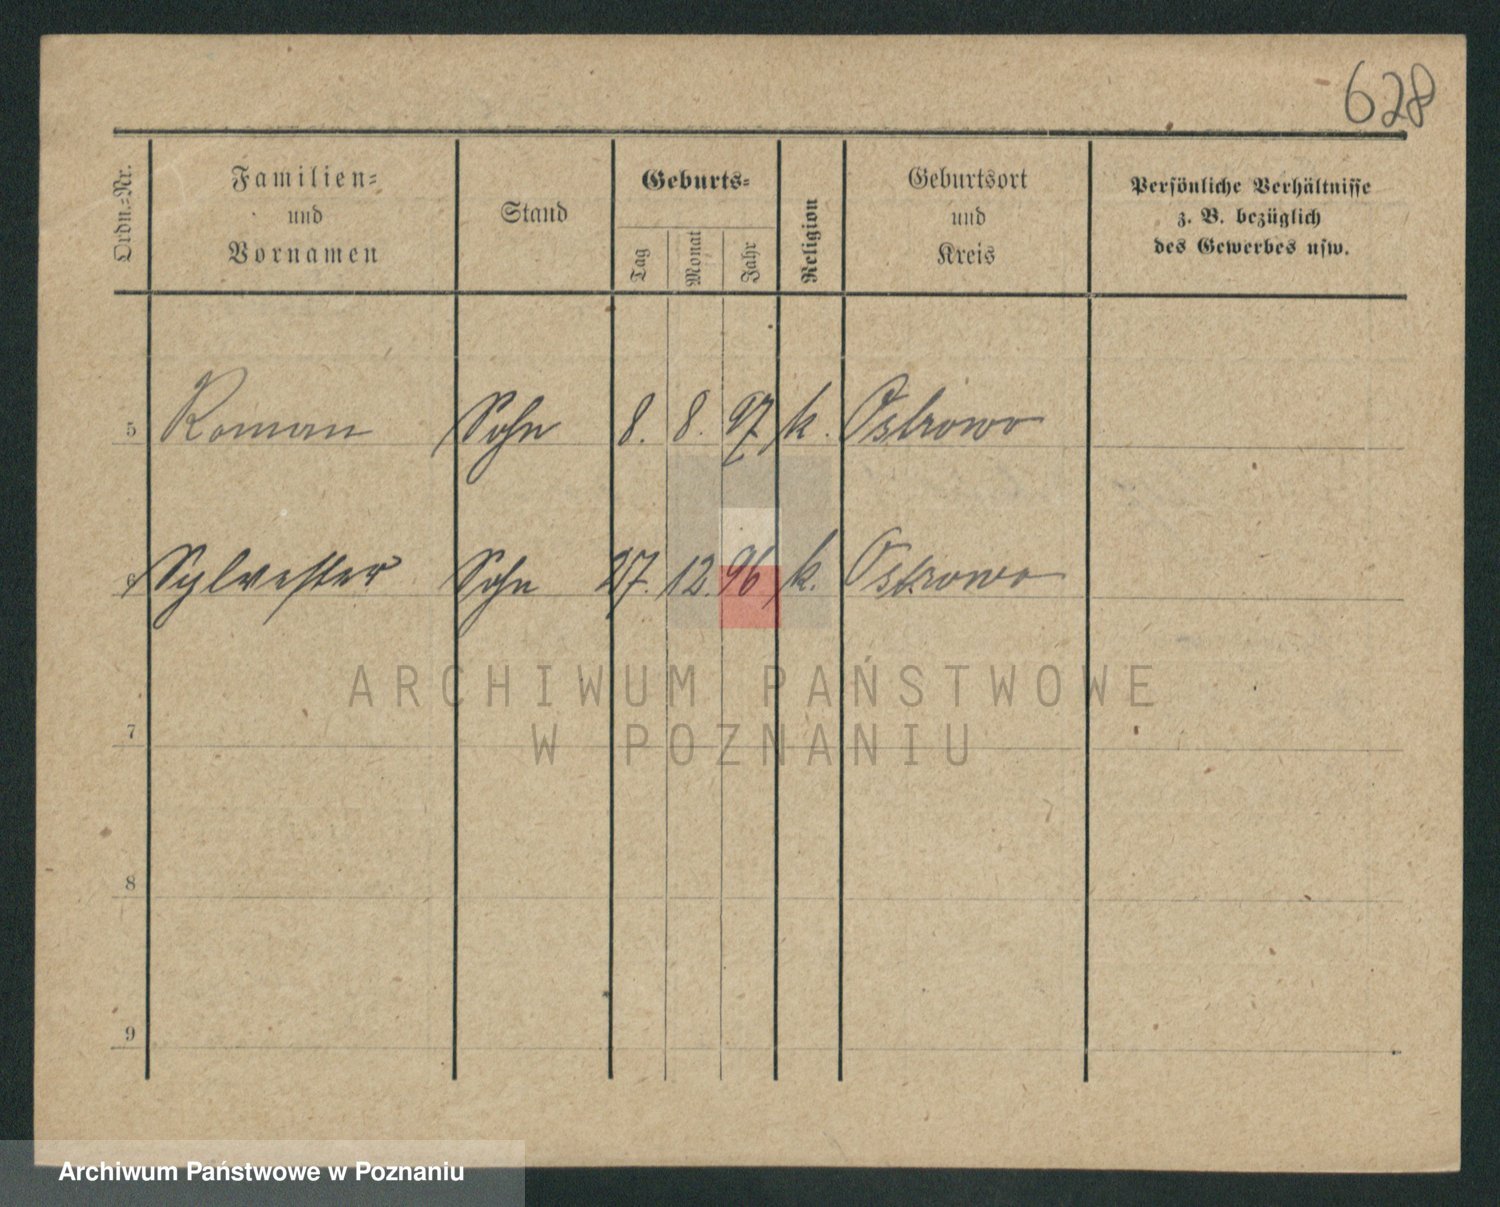 628
Ordn.-Nr.
Familien-
und
Vornamen
Stand
Geburts-
Tag
Monat
Jahr
Religion
Geburtsort
und
Kreis
Persönliche Verhältnisse
z. B. bezüglich
des Gewerbes usw.
5 Roman Sohn 8. 8. 97 k. Ostrowo
6 Sylvester Sohn 27. 12. 96 k. Ostrowo
ARCHIWUM PAŃSTWOWE
W POZNANIU
7
8
9
Archiwum Państwowe w Poznaniu